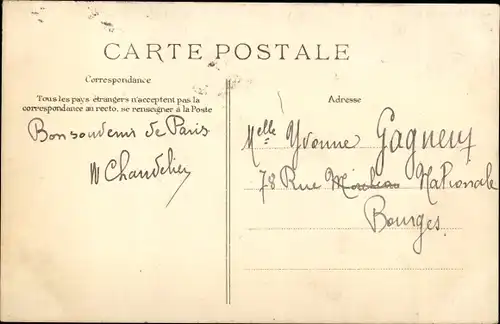 CARTE POSTALE
Correspondance
Tous les pays étrangers n'acceptent pas la
correspondance au recto, se renseigner à la Poste
Bon souvenir de Paris
Chandelier
Adresse
Melle Yvonne
78 Rue Nationale
Bourges